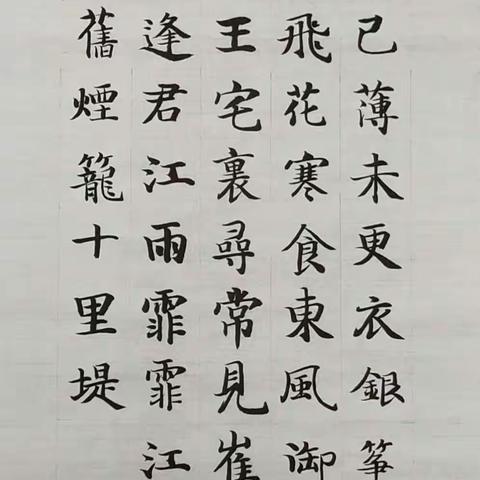 已薄未更衣銀筝
飛花寒食東風御
王宅裏尋常見崔
逢君江雨霏霏江
舊煙籠十里堤